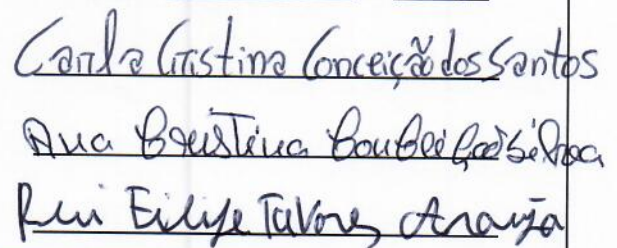 Carla Cristina Conceição dos Santos
Ana Cristina Conceição Silva
Rui Filipe Tavares Araújo